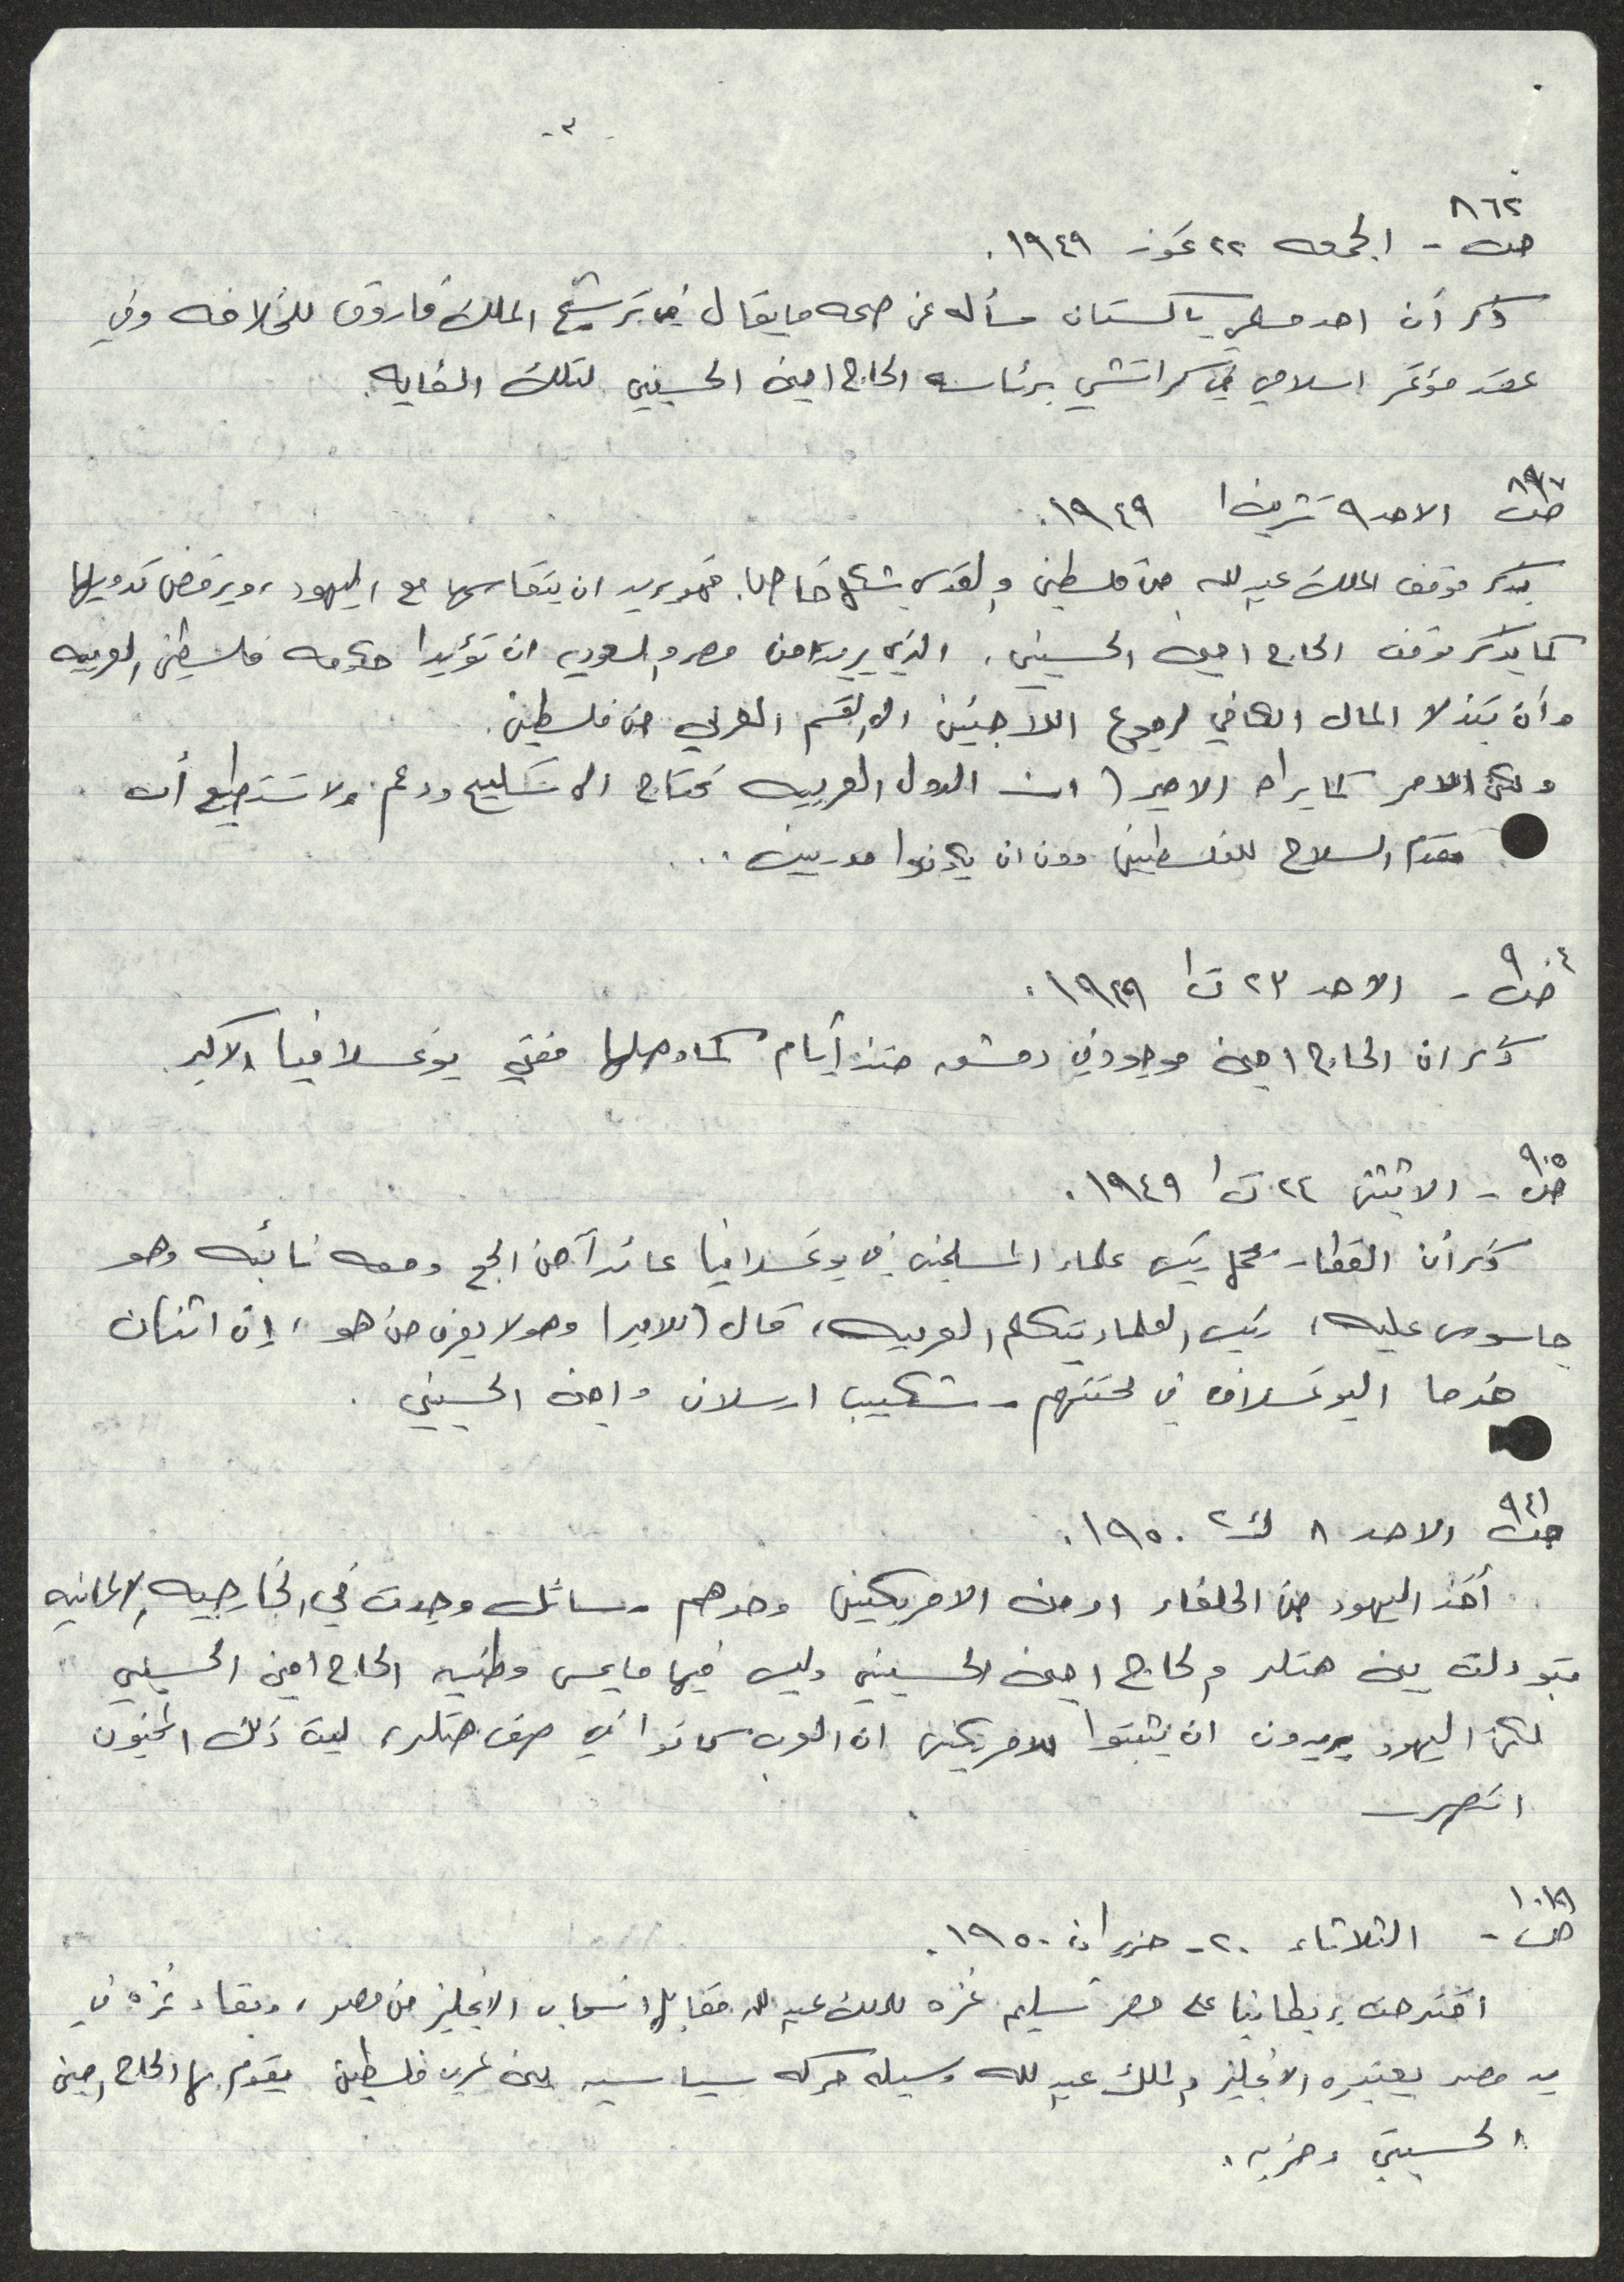 -٣-
ص٨٦٢ - الجمعه ٢٢ تموز ١٩٤٩.
ذكر أن احد مسلمي باكستان سأله عن صحه ما يقال في ترشيح الملك فاروق للخلافه وفي
عقد مؤتمر اسلامي في كراتشي برئاسه الحاج امين الحسيني لتلك الغايه.
ص٨٩٧ الاحد ٩ تشرين١ ١٩٤٩.
يذكر موقف الملك عبد لله من فلسطين والقدس بشكل خاص. فهو يريد ان يتقاسمها مع اليهود، ويرفض تدويلها
كما يذكر موقف الحاج امين الحسيني، الذي يريد من مصر والسعوديه ان تؤيدا حكومه فلسطين العربيه
وأن تبذلا المال الكافي لرجوع اللاجئين الى القسم العربي من فلسطين.
ولكن الامر كما يراه الامير (ان الدول العربيه تحتاج الى تسليح ودعم ولا تستطيع أن
تقدم السلاح للفلسطينين دون ان يكونوا مدربين..
ص٩٠٤ - الاحد ٢٣ ت١ ١٩٤٩.
ذكر ان الحاج امين موجود في دمشق منذ أيام كما وصلها مفتي يوغسلافيا الاكبر.
ص٩٠٥ - الاثنين ٢٤ ت١ ١٩٤٩.
ذكر أن القطار يحمل رئيس علماء المسلمين في يوغسلافيا عائداً من الحج ومعه نائبه وهو
جاسوس عليه، رئيس العلماء يتكلم العربيه، قال (للامير) وهو لا يعرف من هو، إن اثنان
خدما اليوغسلاف في محنتهم - شكيب ارسلان وامين الحسيني.
ص٩٤١ الاحد ٨ ك٢ ١٩٥٠.
أخذ اليهود من الحلفاء او من الامريكيين وحدهم رسائل وجدت في الخارجيه الالمانيه
تبودلت بين هتلر والحاج امين الحسيني وليس فيها ما يمس وطنيه الحاج امين الحسيني
لكن اليهود يريدون ان يثبتوا للامريكيين ان العرب كانوا في صف هتلر، ليت ذلك المجنون
انتصر
ص١٠١٩ - الثلاثاء ٢٠ - حزيران ١٩٥٠.
اقترحت بريطانيا على مصر تسليم غزه للملك عبد لله مقابل انسحاب الانجليز من مصر، وبقاء غزه في
يد مصر يعتبره الانجليز والملك عبد لله وسيله حركه سياسيه بين عرب فلسطين يقوم بها الحاج امين
الحسيني وحزبه.